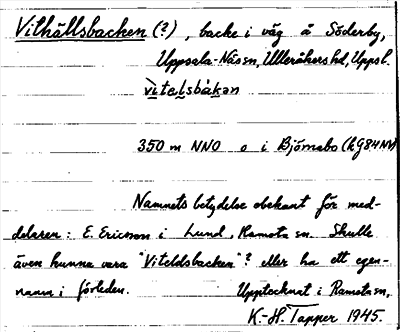 Vithällsbacken (?), backe i väg å Söderby,
Uppsala-Näs sn, Ulleråkers hd, Uppsl.
vitɘlsbákɘn
350 m NNO o i Björnsbo (kg 84 NV)
Namnets betydelse obekant för med-
delaren: E. Ericson i Lund, Ramsta sn. Skulle
även kunna vara "Viteldsbacken"? eller ha ett egen-
namn i förleden. Upptecknat i Ramsta sn,
K.-H. Tapper 1945.